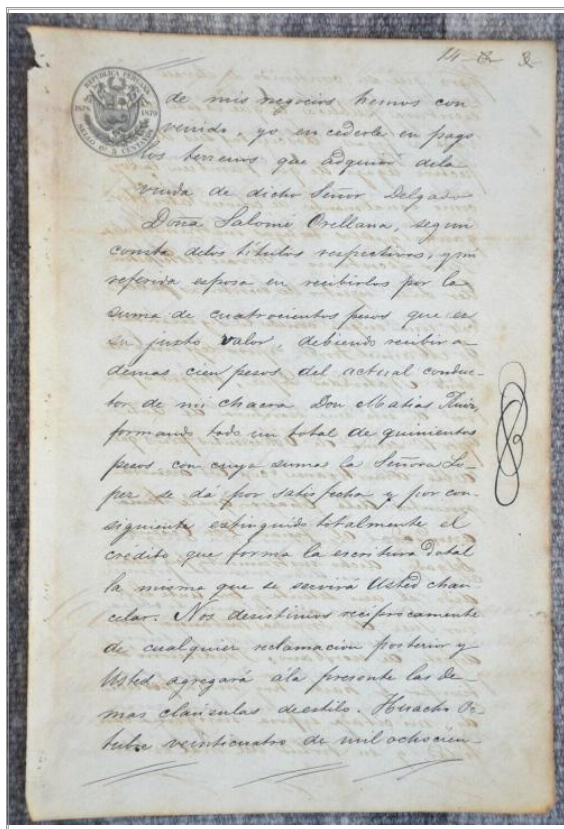 14
REPUBLICA PERUANA
1878 1879
SELLO 6º 5 CENTAVOS
de mis negocios hemos con
venido, yo en cederle en pago
los terrenos que adquirí dela
viuda de dicho Señor Delgado
Doña Salomé Orellana, segun
consta delos títulos respectivos, y mi
referida esposa en recibirlos por la
suma de cuatrocientos pesos que es
su justo valor, debiendo recibir a-
demas cien pesos del actual conduc-
tor de mi chacra Don Matias Ruiz,
formando todo un total de quinientos
pesos con cuya suma la Señora Lo-
pez se dá por satisfecha y por con-
siguiente extinguido totalmente el
credito que forma la escritura Dotal
la misma que se servirá Usted chan-
celar. Nos desistimos recíprocamente
de cualquier reclamacion posterior y
Usted agregará ala presente las De
mas clausulas de estilo. Huacho Oc-
tubre veinticuatro de mil ochocien-